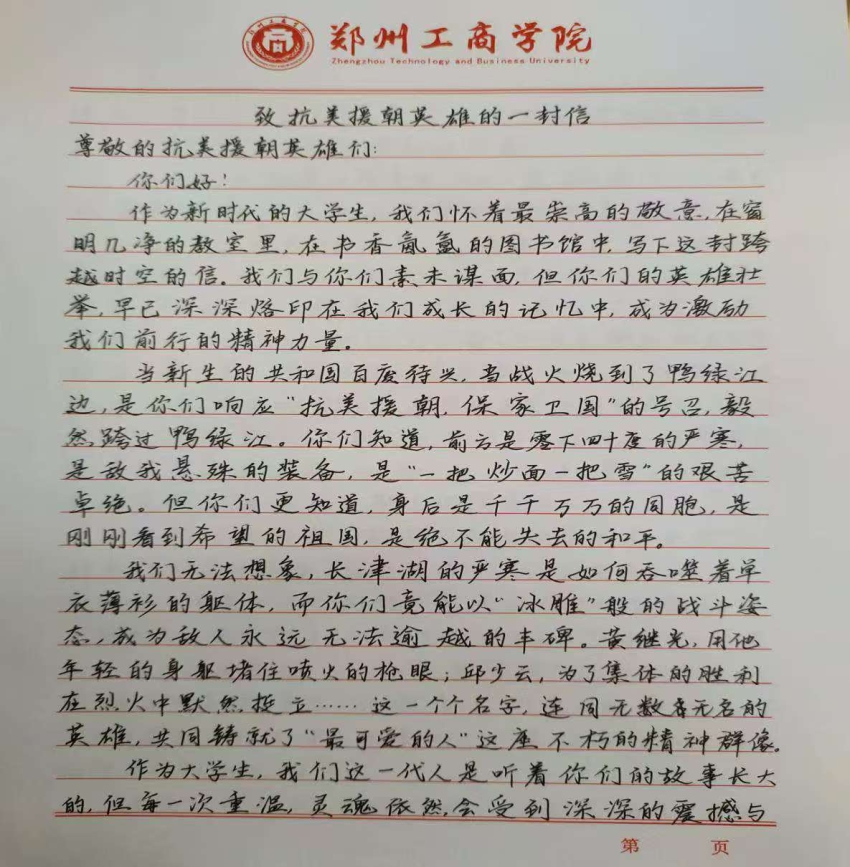 郑州工商学院
Zhengzhou Technology and Business University
致抗美援朝英雄的一封信
尊敬的抗美援朝英雄们:
你们好!
作为新时代的大学生,我们怀着最崇高的敬意,在窗
明几净的教室里,在书香氤氲的图书馆中,写下这封跨
越时空的信。我们与你们素未谋面,但你们的英雄壮
举,早已深深烙印在我们成长的记忆中,成为激励
我们前行的精神力量。
当新生的共和国百废待兴,当战火烧到了鸭绿江
边,是你们响应“抗美援朝,保家卫国”的号召,毅
然跨过鸭绿江。你们知道,前方是零下四十度的严寒,
是敌我悬殊的装备,是“一把炒面一把雪”的艰苦
卓绝。但你们更知道,身后是千千万万的同胞,是
刚刚看到希望的祖国,是绝不能失去的和平。
我们无法想象,长津湖的严寒是如何吞噬着单
衣薄衫的躯体,而你们竟能以“冰雕”般的战斗姿
态,成为敌人永远无法逾越的丰碑。黄继光,用他
年轻的身躯堵住喷火的枪眼;邱少云,为了集体的胜利
在烈火中默然挺立……这一个个名字,连同无数无名的
英雄,共同铸就了“最可爱的人”这座不朽的精神群像。
作为大学生,我们这一代人是听着你们的故事长大
的,但每一次重温,灵魂依然会受到深深的震撼与
第 页